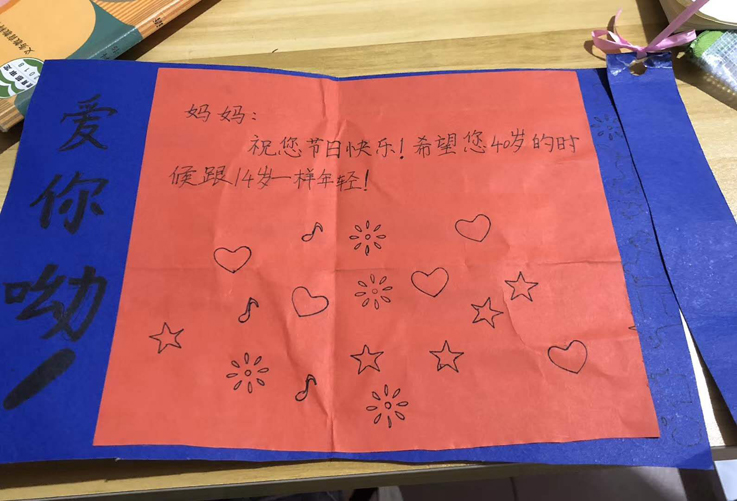 爱你呦!
妈妈:
祝您节日快乐!希望您40岁的时
候跟14岁一样年轻!